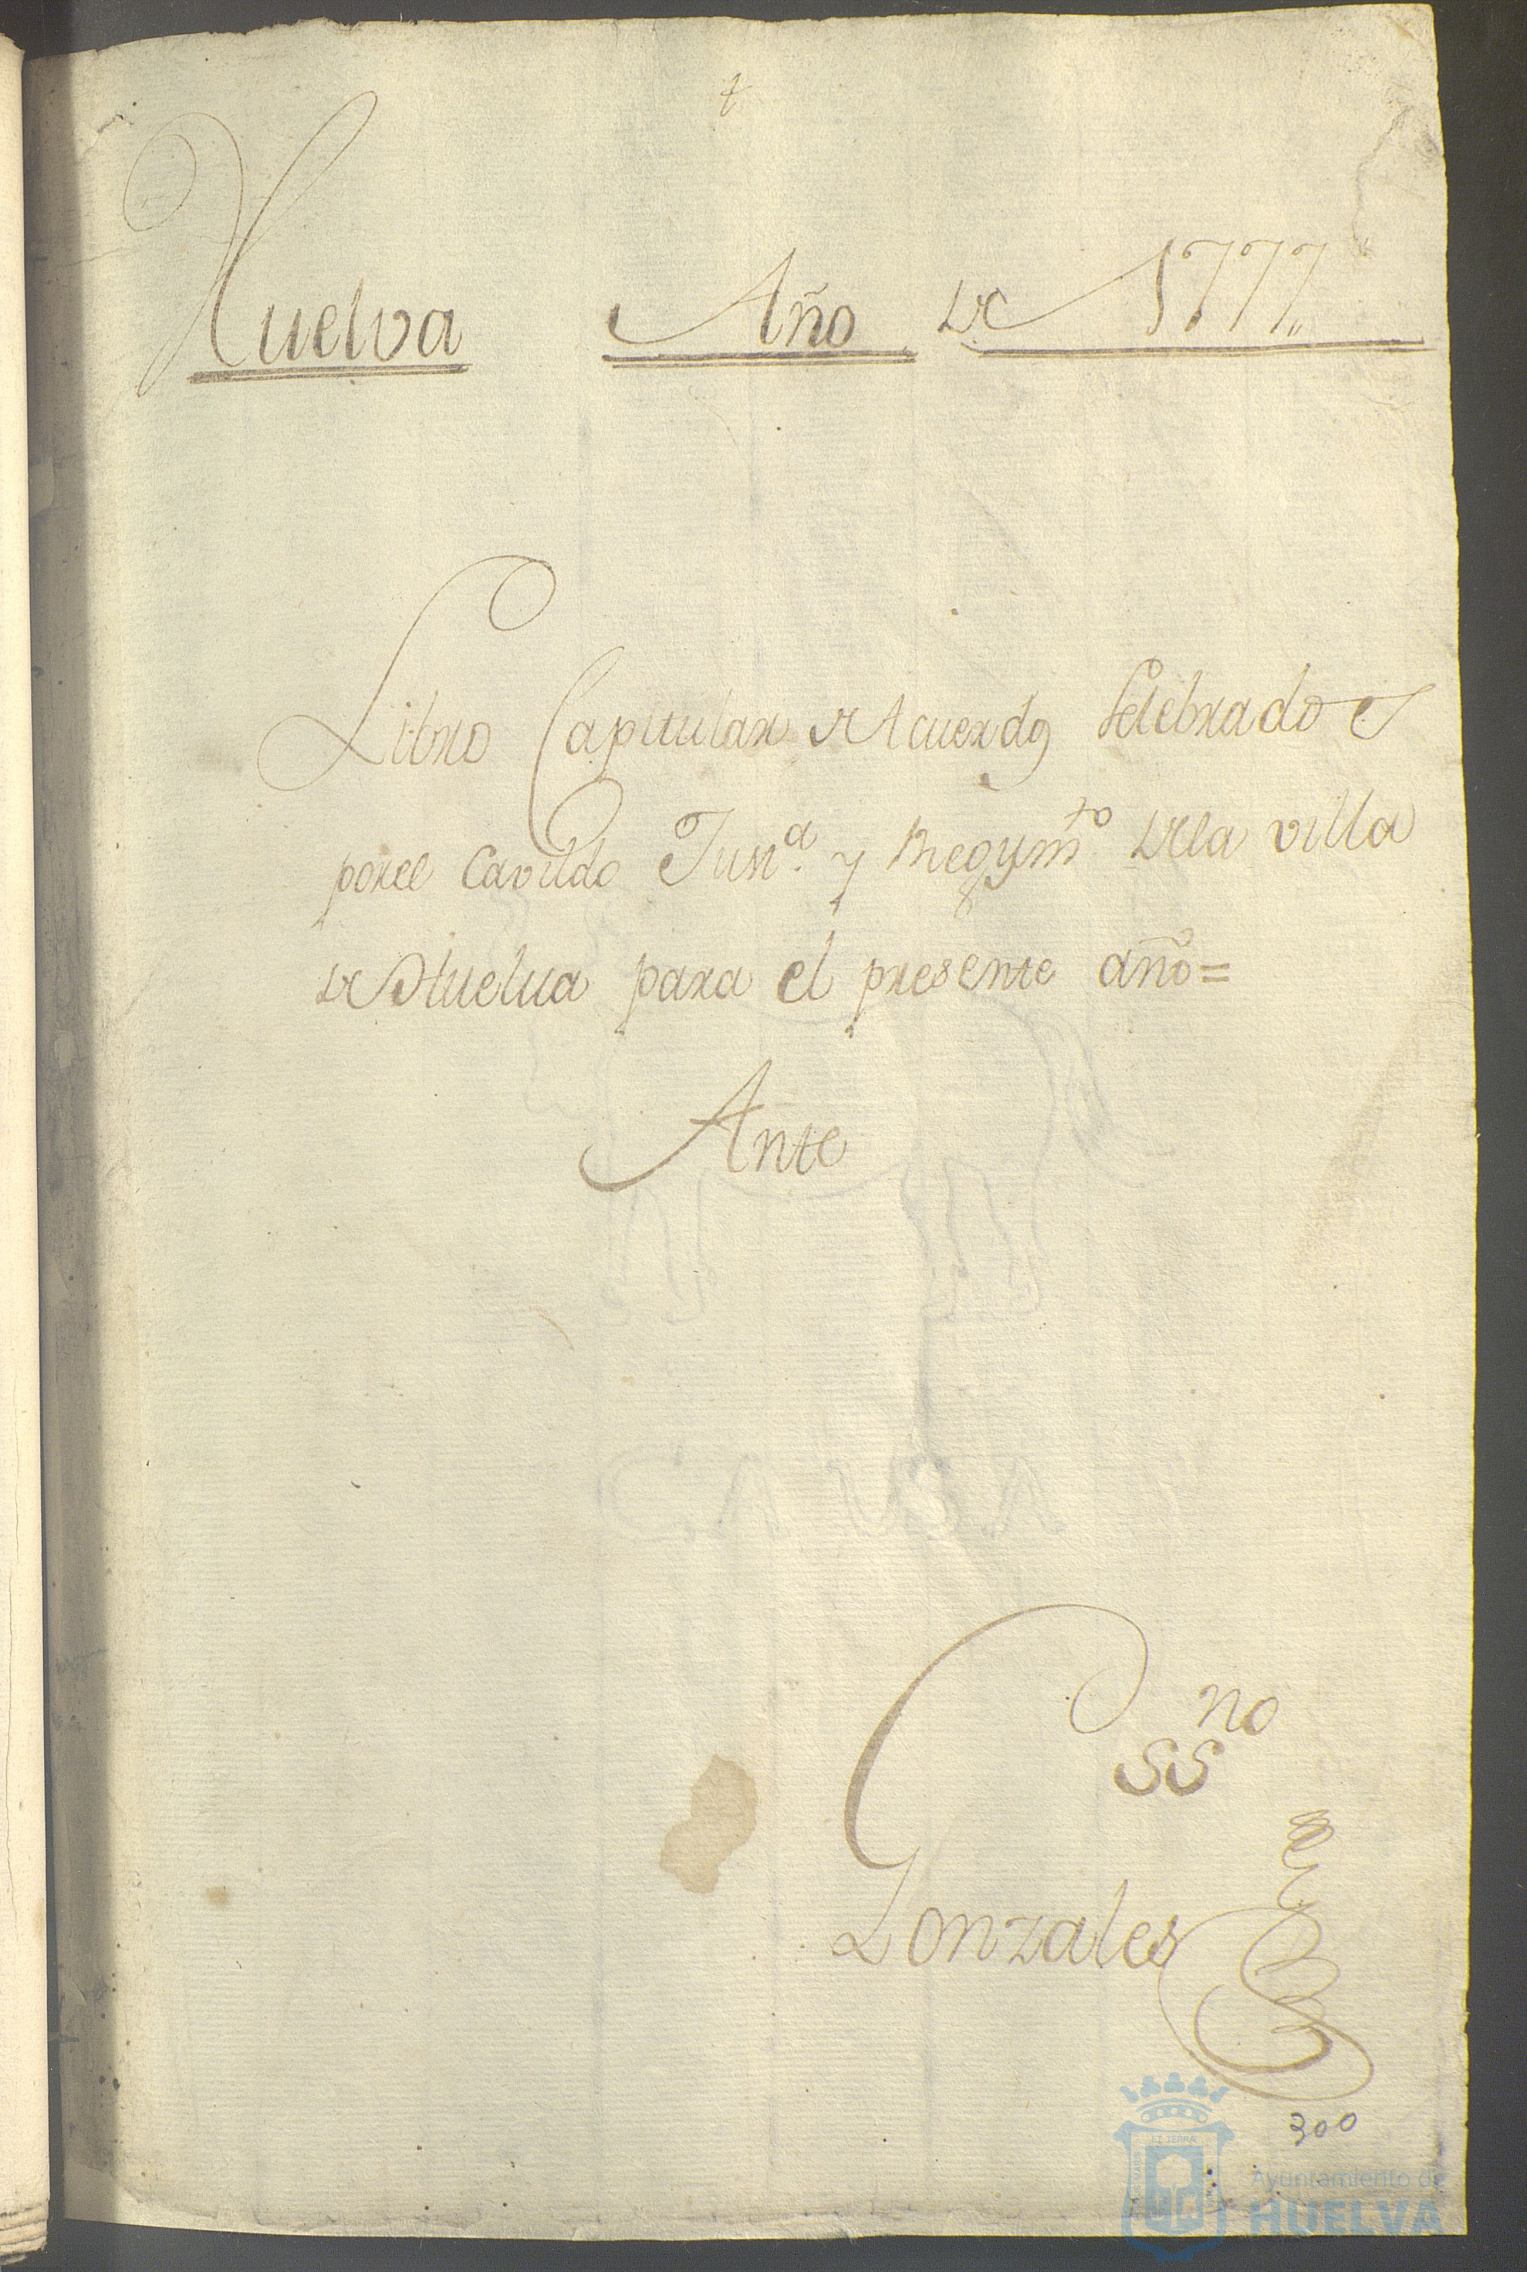 †
Huelva Año de 1777,,
Libro Capitular de Acuerdos Selebrados
por el Cavildo Just.ª y Regym.to de la villa
de Huelua para el presente año=
Ante
SSno
Gonzales
300
Ayuntamiento de
HUELVA